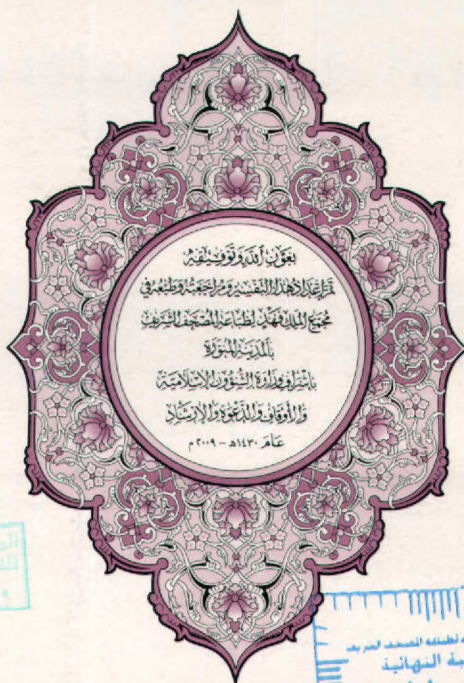 بعَون الله وَتَوفيقه
تمّ إعداد هٰذا التّفسير ومُراجعته وطبعه في
مُجمّع الملك فهد لطباعة المُصحف الشّريف
بالمدينة المنوّرة
بإشراف وزارة الشّؤون الإسلاميّة
والأوقاف والدّعوة والإرشاد
عَام ١٤٣٠هـ - ٢٠٠٩م
لطباعة المصحف الشريف
النهائية